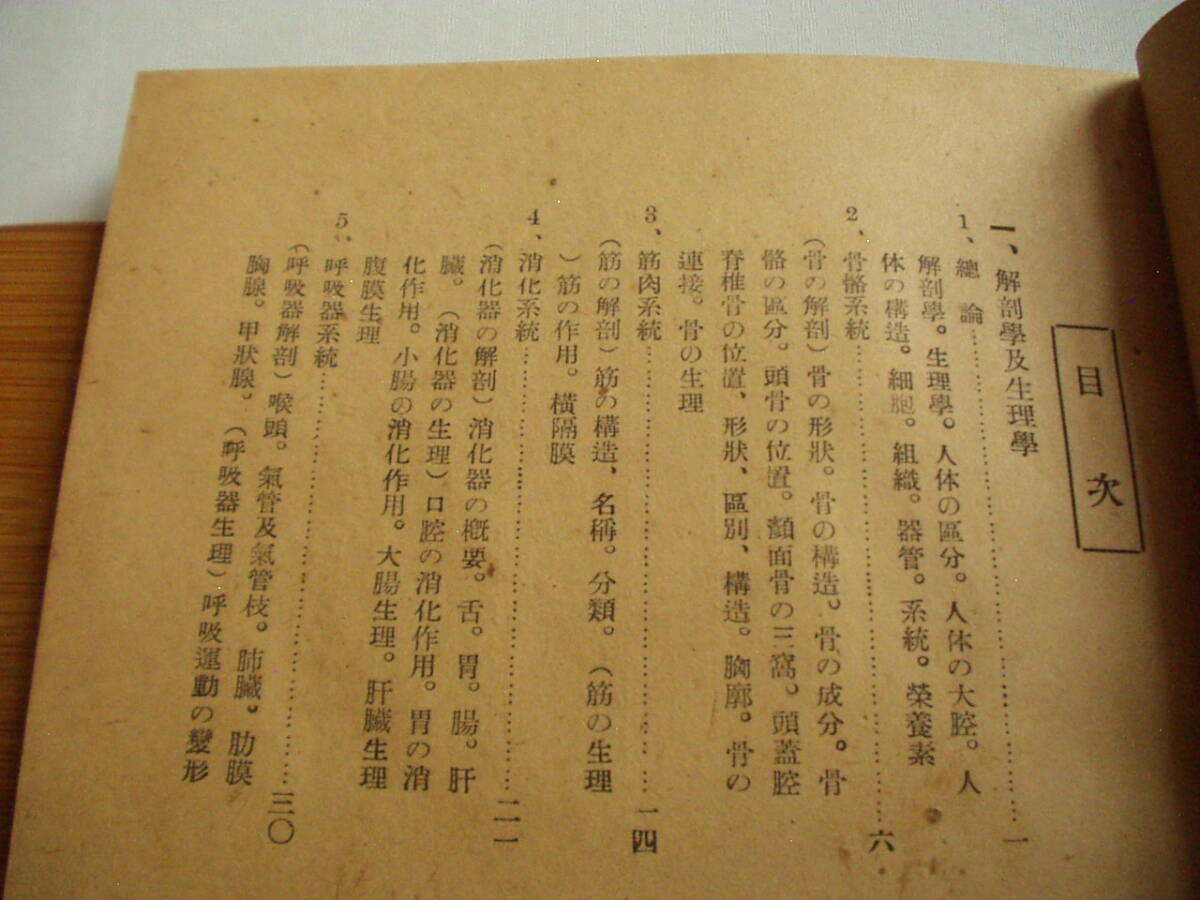 目次
一、解剖學及生理學
1、總論……一
解剖學。生理學。人体の區分。人体の大腔。人
体の構造。細胞。組織。器管。系統。榮養素
2、骨骼系統……六
(骨の解剖)骨の形狀。骨の構造。骨の成分。骨
骼の區分。頭骨の位置。顏面骨の三窩。頭蓋腔
脊椎骨の位置、形狀、區別、構造。胸廓。骨の
連接。骨の生理
3、筋肉系統……一四
(筋の解剖)筋の構造、名稱。分類。(筋の生理
)筋の作用。橫隔膜
4、消化系統……二一
(消化器の解剖)消化器の槪要。舌。胃。腸。肝
臟。(消化器の生理)口腔の消化作用。胃の消
化作用。小腸の消化作用。大腸生理。肝臟生理
腹膜生理
5、呼吸器系統……三〇
(呼吸器解剖)喉頭。氣管及氣管枝。肺臟。肋膜
胸腺。甲狀腺。(呼吸器生理)呼吸運動の變形